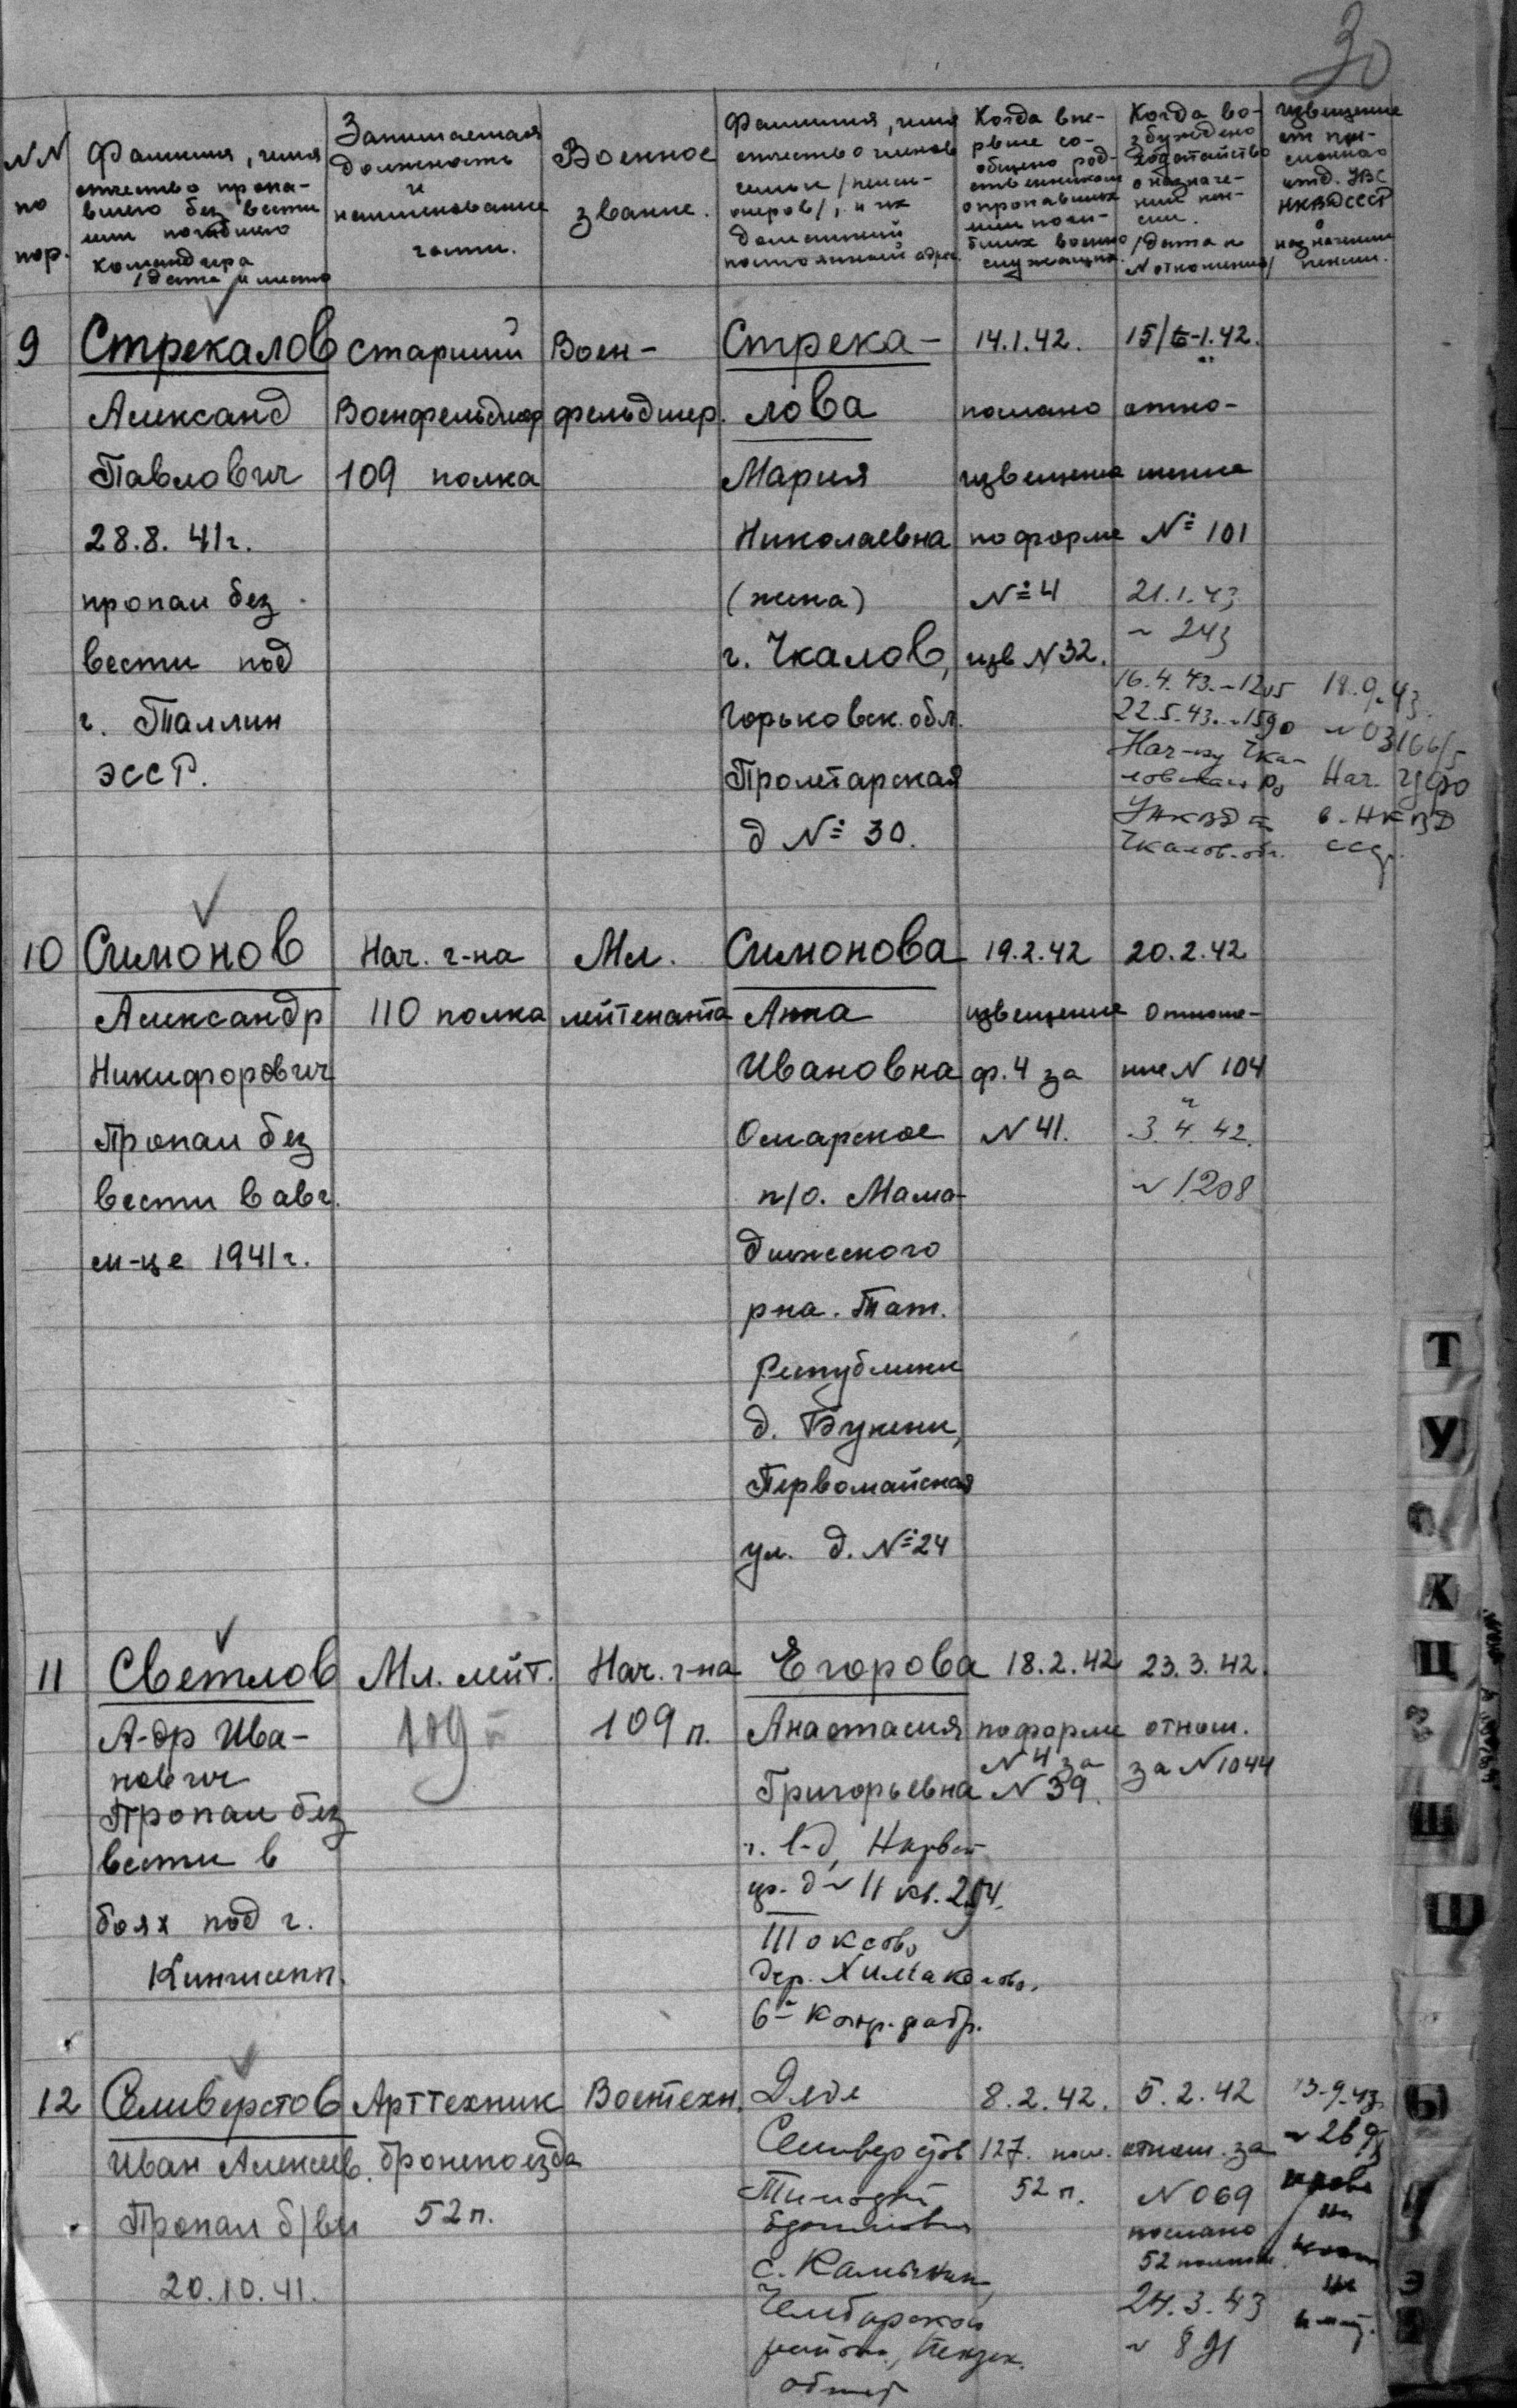 30
NN
по
пор.
Фамилия, имя
отчество пропа-
вшего без вести
или погибшего
командира
/дата и место
Занимаемая
должность
и
наименование
части.
Военное
звание.
Фамилия, имя
отчество членов
семьи /пенси-
онеров/, и их
домашний
постоянный адрес.
Когда впе-
рвые со-
общено род-
ственникам
о пропавших
или поги-
бших военно
служащих.
Когда во-
збуждено
ходатайство
о назначе-
нии пен-
сии.
/дата и
N отношения/
Извещение
от пен-
сионного
отд. УВС
НКВД СССР
о
назначении
пенсии.
9
Стрекалов
Александ
Павлович
28.8. 41г.
пропал без
вести под
г. Таллин
ЭССР.
старший
Военфельдшер
109 полка
Воен-
фельдшер.
Стрека-
лова
Мария
Николаевна
(жена)
г. Чкалов,
Горьковск. обл.
Пролетарская
д № 30.
14.1.42.
послано
извещение
по форме
№ 4
изв N 32.
15/-1.42.
отно-
шение
№ 101
21.1.43
~ 243
16.4.43.~1205
22.5.43.~1590
Нач-ку Чка-
ловского РО
УНКВД
Чкалов. обл.
18.9.43.
Нач. ЦФО
НКВД
СССР.
10
Симонов
Александр
Никифорович
Пропал без
вести в авг.
м-це 1941г.
Нач. г-на
110 полка
Мл.
лейтенанта
Симонова
Анна
Ивановна
Омарское
п/о. Мама-
дышского
р-на. Тат.
Республики
д. Букени,
Первомайская
ул. д. №24
19.2.42
извещение
ф. 4 за
N 41.
20.2.42
Отноше-
ние N 104
3.4.42.
~ 1208
11
Светлов
А-др Ива-
нович
Пропал без
вести в
боях под г.
Кингисепп.
Мл. лейт.
109
Нач. г-на
109 п.
Егорова
Анастасия
Григорьевна
г. Л-д, Нарвск
пр. д ~ 11 кв. 254.
Токсово
дер. Химаколово.
18.2.42
по форме
N 4 за
N 39.
23.3.42.
отнош.
за N 1044
12
Селиверстов
Иван Алексеев.
Пропал б/вести
20.10.41.
Арттехник
бронепоезда
52 п.
Воентехн.
Дядя
Селиверстов
Тимофей
с.
Чембарского
района, Пензен.
области
8.2.42.
127. пол.
52 п.
5.2.42
отнош. за
N 069
послано
52 полком.
24.3.43
~ 891
13.9.43
Т
У
Ф
Х
Ц
Ч
Ш
Щ
Ы
Э